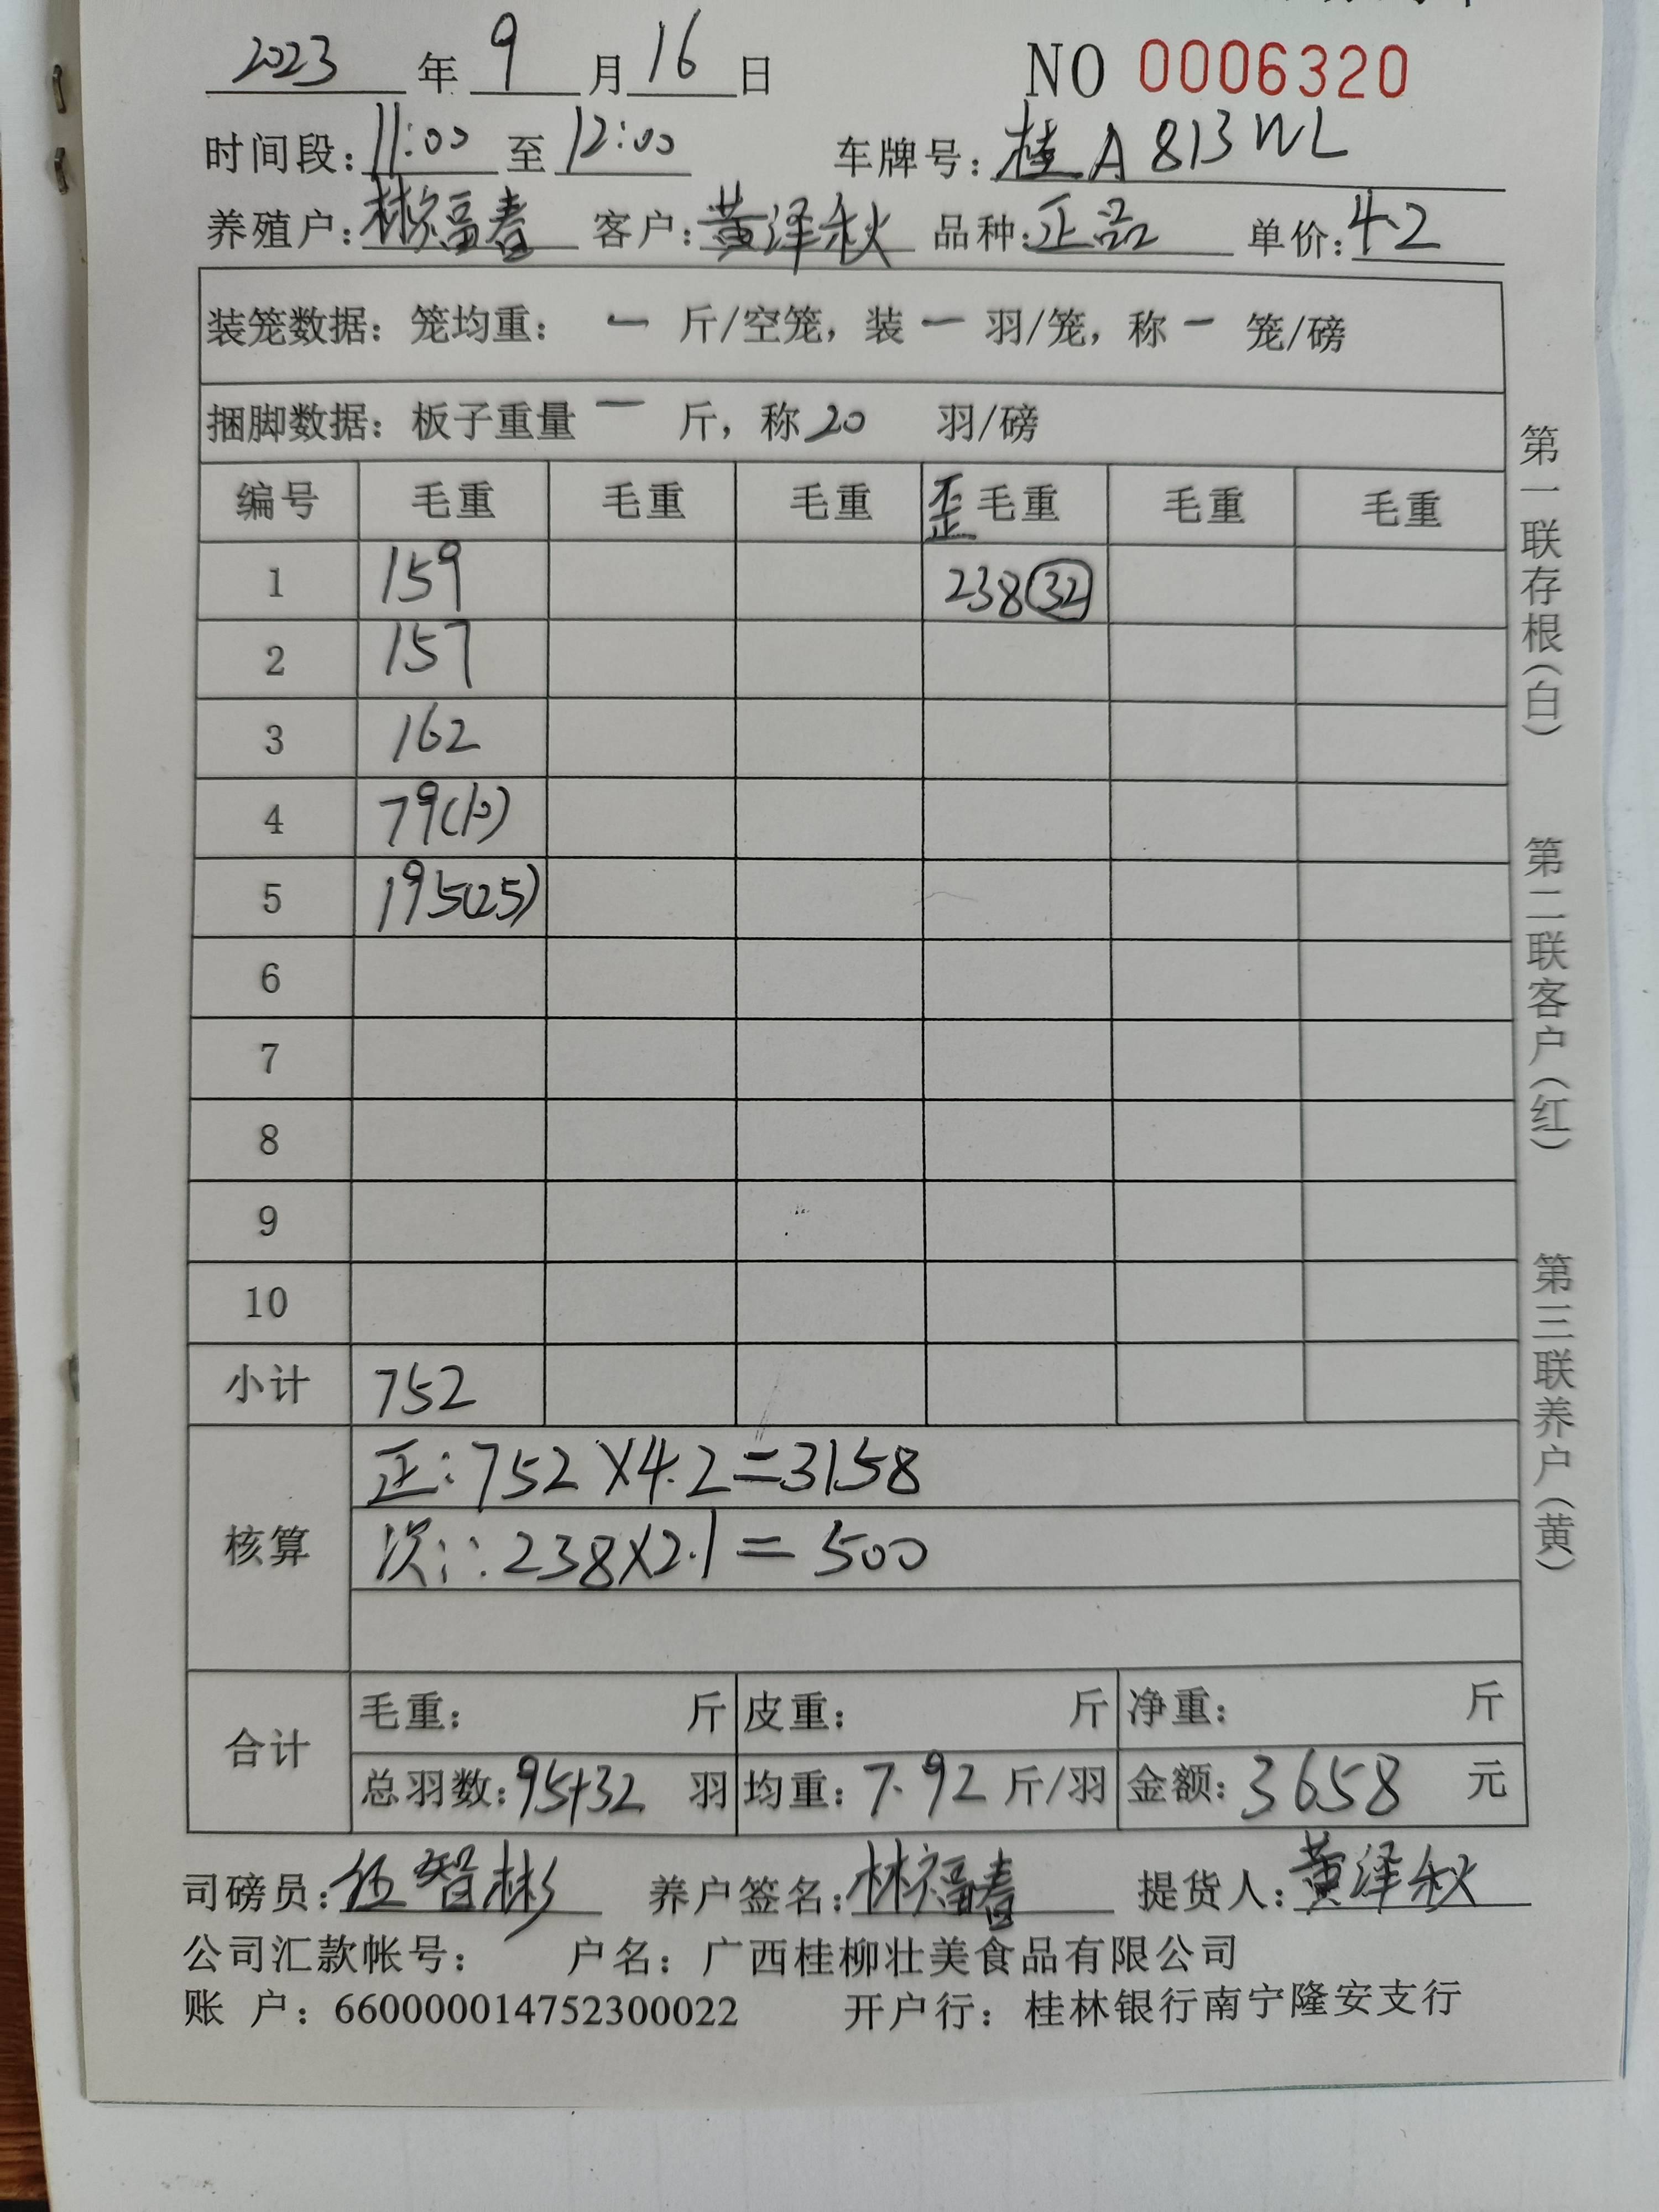 2023 年 9 月 16 日 NO 0006320
时间段: 11:00 至 12:00 车牌号: 桂A813WL
养殖户: 林福春 客户: 黄泽秋 品种: 正品 单价: 4.2
装笼数据: 笼均重: — 斤/空笼, 装 — 羽/笼, 称 — 笼/磅
捆脚数据: 板子重量 — 斤, 称 20 羽/磅
编号 毛重 毛重 毛重 歪 毛重 毛重 毛重
1 159 238(32)
2 157
3 162
4 79(10)
5 195(25)
6
7
8
9
10
小计 752
核算 正: 752×4.2=3158
次: 238×2.1=500
合计 毛重: 斤 皮重: 斤 净重: 斤
总羽数: 95+32 羽 均重: 7.92 斤/羽 金额: 3658 元
司磅员: 伍智彬 养户签名: 林福春 提货人: 黄泽秋
公司汇款帐号: 户名: 广西桂柳壮美食品有限公司
账 户: 660000014752300022 开户行: 桂林银行南宁隆安支行
第一联存根(白) 第二联客户(红) 第三联养户(黄)